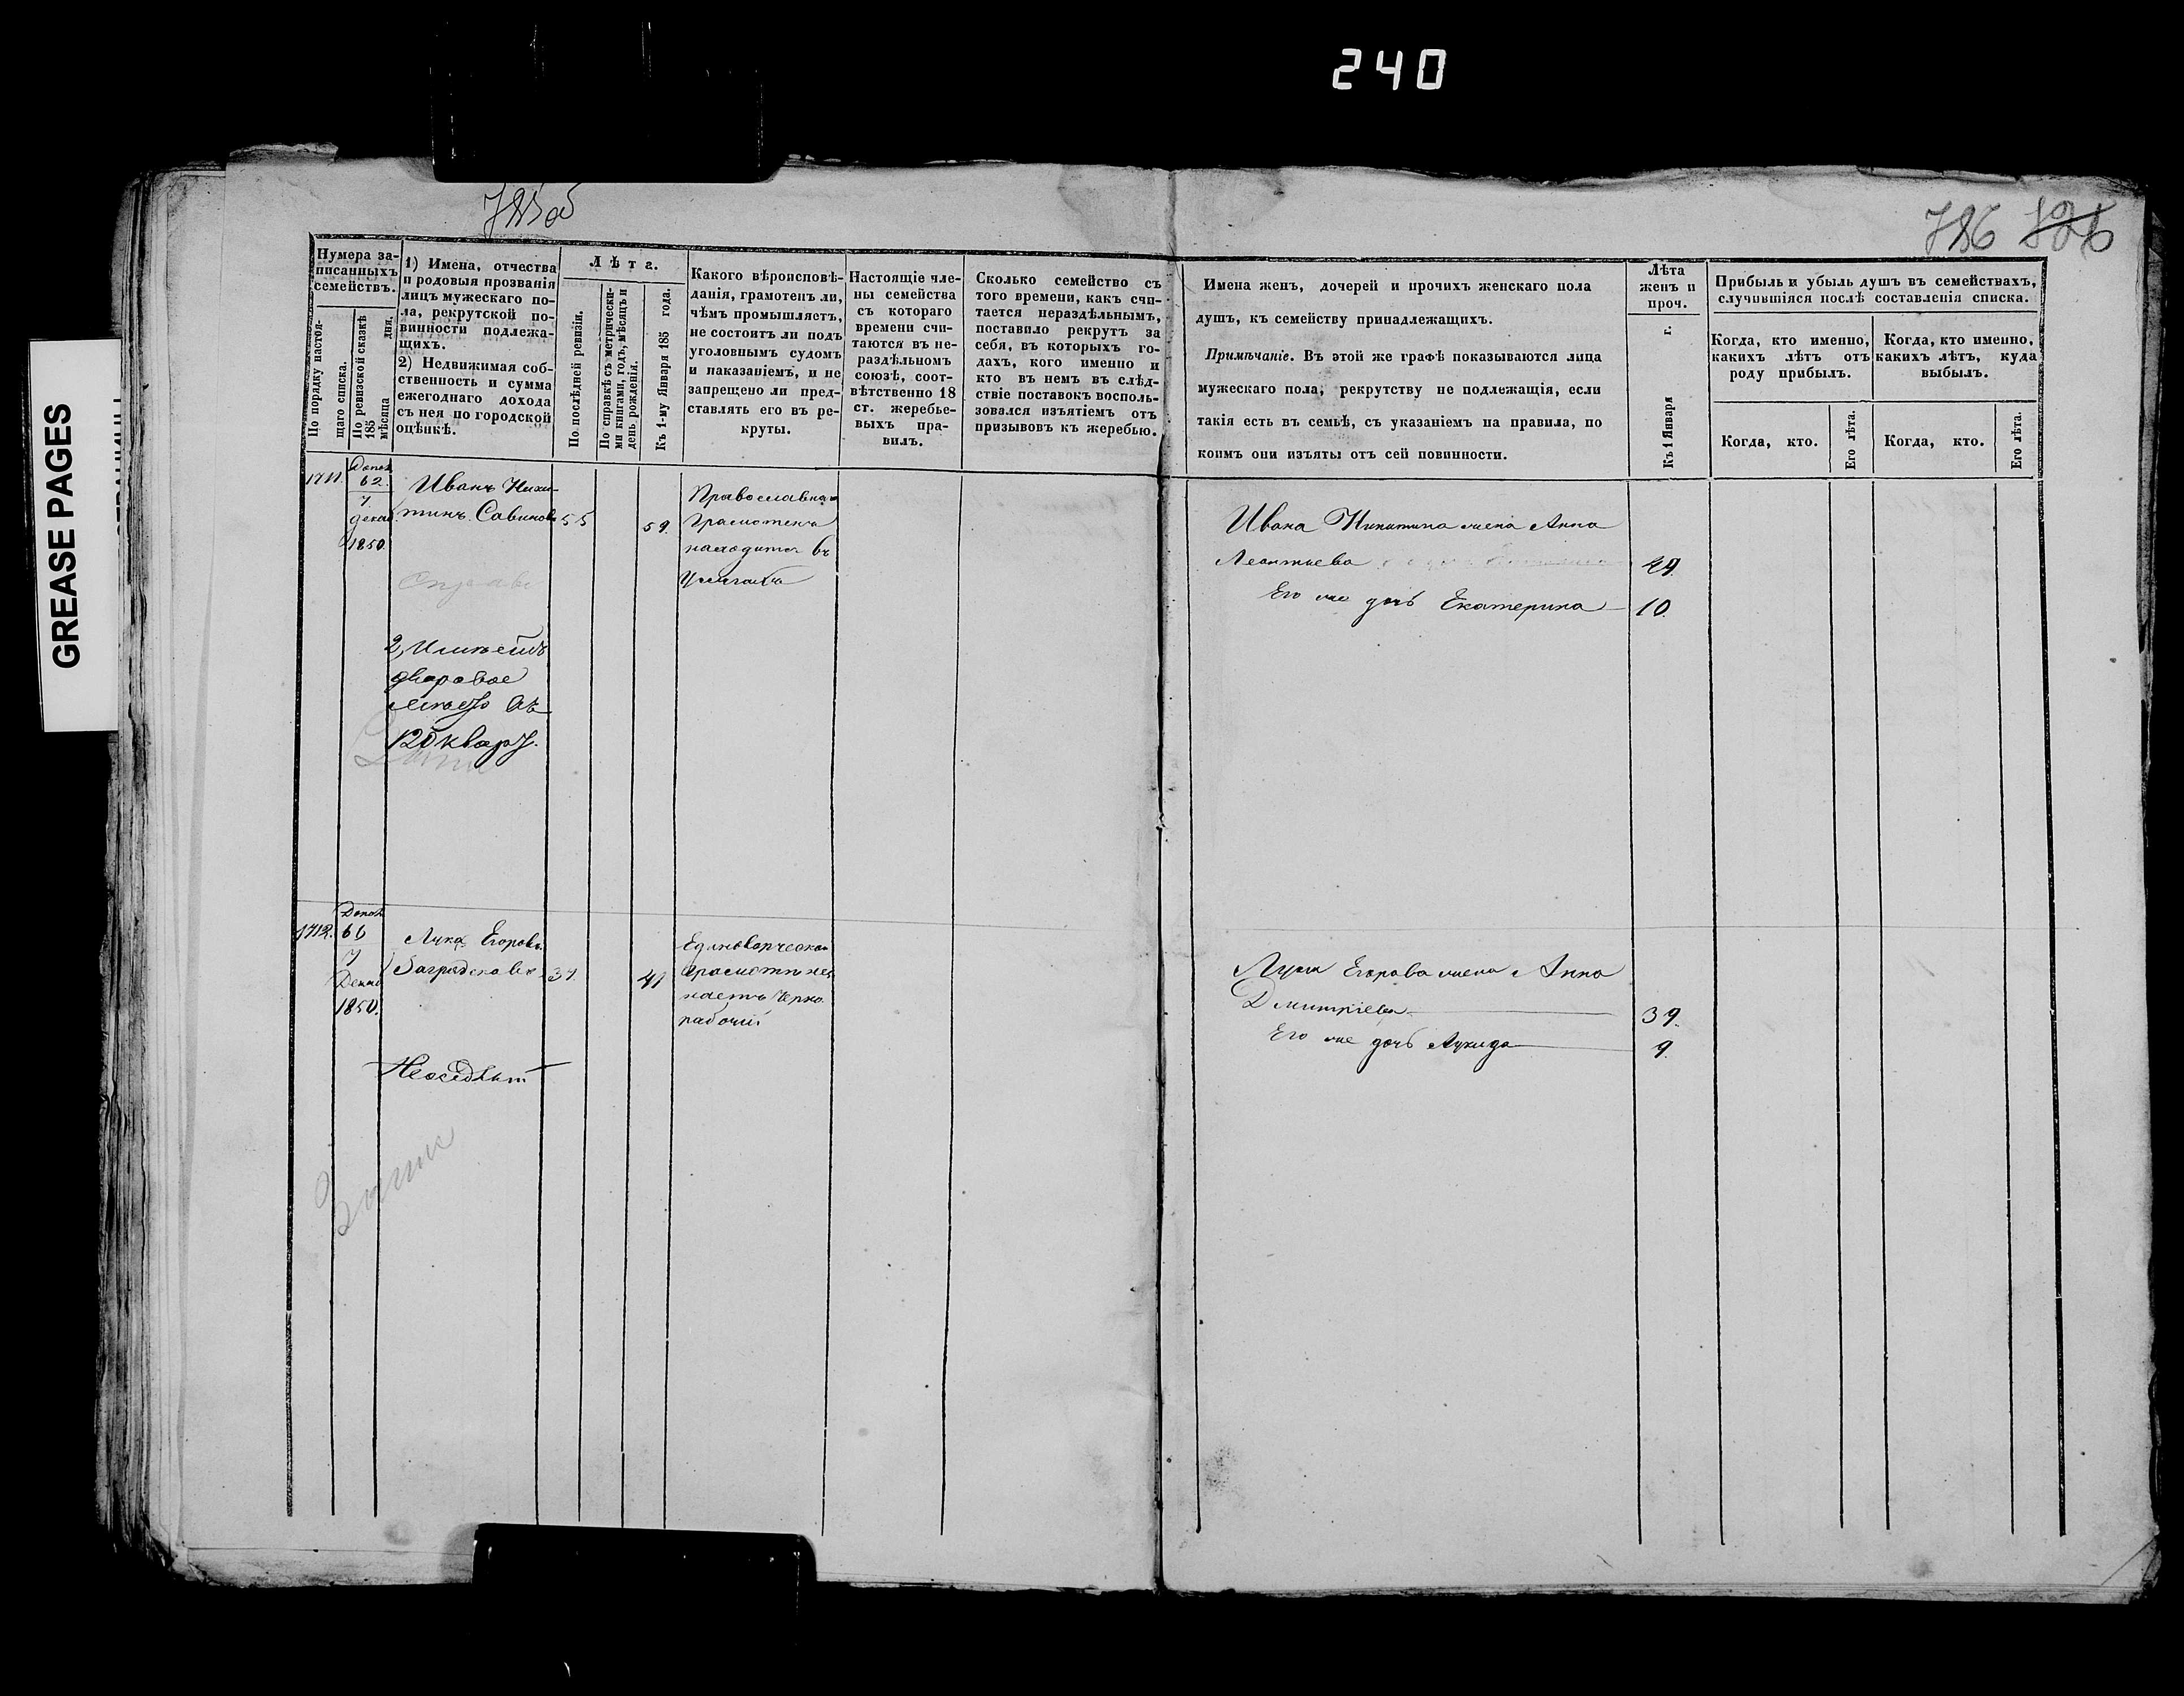 240
GREASE PAGES
785 об
786
Нумера за-
писанныхъ
семействъ.
По порядку настоя-
щаго списка.
По ревизской сказкѣ
185
мѣсяца дня.
1) Имена, отчества
и родовыя прозванія
лицъ мужескаго по-
ла, рекрутской по-
винности подлежа-
щихъ.
2) Недвижимая соб-
ственность и сумма
ежегоднаго дохода
съ нея по городской
оцѣнкѣ.
Лѣта.
По послѣдней ревизіи.
По справкѣ съ метрически-
ми книгами, годъ, мѣсяцъ и
день рожденія.
Къ 1-му Января 185 года.
Какого вѣроисповѣ-
данія, грамотенъ ли,
чѣмъ промышляетъ,
не состоитъ ли подъ
уголовнымъ судомъ
и наказаніемъ, и не
запрещено ли пред-
ставлять его въ ре-
круты.
Настоящіе чле-
ны семейства
съ котораго
времени счи-
таются въ не-
раздѣльномъ
союзѣ, соот-
вѣтственно 18
ст. жеребье-
выхъ пра-
вилъ.
Сколько семейство съ
того времени, какъ счи-
тается нераздѣльнымъ,
поставило рекрутъ за
себя, въ которыхъ го-
дахъ, кого именно и
кто въ немъ въ слѣд-
ствіе поставокъ восполь-
зовался изъятіемъ отъ
призывовъ къ жеребью.
Имена женъ, дочерей и прочихъ женскаго пола
душъ, къ семейству принадлежащихъ.
Примѣчаніе. Въ этой же графѣ показываются лица
мужескаго пола, рекрутству не подлежащія, если
такія есть въ семьѣ, съ указаніемъ на правила, по
коимъ они изъяты отъ сей повинности.
Лѣта
женъ и
проч.
Къ 1 Января г.
Прибыль и убыль душъ въ семействахъ,
случившіяся послѣ составленія списка.
Когда, кто именно,
какихъ лѣтъ отъ
роду прибылъ.
Когда, кто именно,
какихъ лѣтъ, куда
выбылъ.
Когда, кто.
Его лѣта.
Когда, кто.
Его лѣта.
1711.
Допол
62.
7
декаб.
1850.
Иванъ Ники-
тинъ Савиновъ
55
59.
Православнаго
Грамотенъ
находится въ
2, Имѣетъ
дворовое
мѣсто въ
120 кварт.
Ивана Никитина жена Анна
Леонтьева
49.
Его же дочь Екатерина
10.
1712.
Допол
66
7
Декаб
1850.
Лука Егоровъ
37.
41
Единоверческаго
Грамотѣ не
знаетъ Черно
рабочій
Неоседлый
Луки Егорова жена Анна
Дмитріева
39.
Его же дочь Лукида
9.